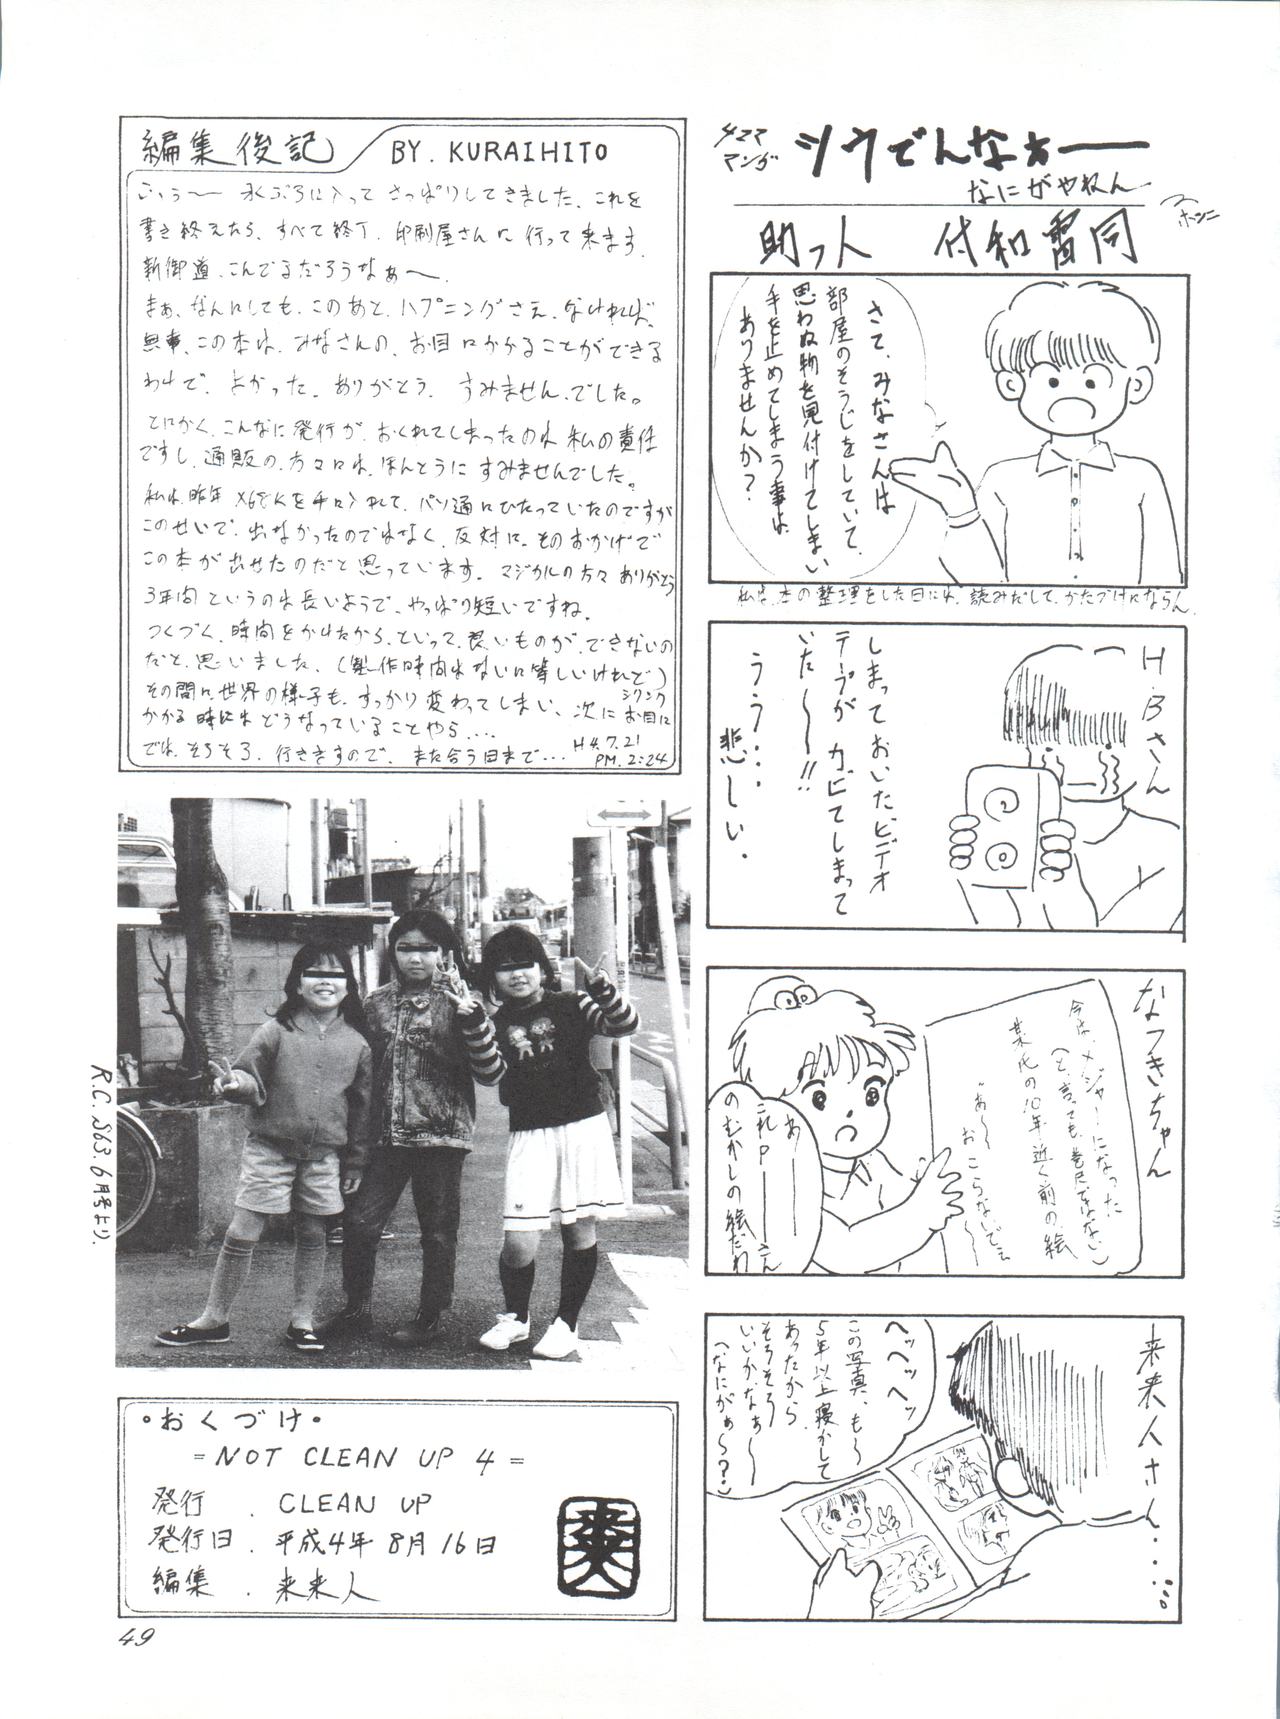 編集後記
BY. KURAIHITO
ふぅぅ〜 水ぶろに入って さっぱりしてきました。これを
書き終えたら、すべて終了、印刷屋さんに行って来ます。
新御道、こんでるだろうなぁ〜。
まぁ、なんにしても、このあと、ハプニングさえ、なければ、
無事、この本は、みなさんの、お目にかかることができる
わけで、よかった。ありがとう。すみません、でした。
とにかく、こんなに発行が、おくれてしまったのは 私の責任
ですし、通販の、方々には、ほんとうに すみませんでした。
私は、昨年 X68Kを手に入れて、パソ通にひたっていたのですが
このせいで、出なかったのではなく、反対に、そのおかげで
この本が出せたのだと思っています。マジカルの方々 ありがとう
3年間というのは長いようで、やっぱり短いですね。
つくづく、時間をかけたから、といって、良いものが、できないの
だと、思いました、(製作時間はないに等しいけれど)
その間に、世界の様子も、すっかり変わってしまい、次に お目に
シリンク
かかる時には どうなっていることやら....
では、そろそろ、行きますので、また合う日まで...
H4.7.21
PM. 2:24
R.C. S63.6月号より.
•おくづけ•
=NOT CLEAN UP 4=
発行 . CLEAN UP
発行日 . 平成4年8月16日
編集 . 来来人
49
4コマ
マンガ
シウでんなぁー
なにがやねん
ホンニ
助っ人 付和雷同
さて、みなさんは
部屋のそうじをしていて、
思わぬ物を見付けてしまい
手を止めてしまう事は
ありませんか?
私は、本の整理をした日には、読みだして、かたづけにならん、
H.Bさん
しまっておいたビデオ
テープが カビてしまって
いた〜〜!!
うう....
悲しい.
なつきちゃん
今は、メジャーになった
(と、言っても、巻尺ではない)
某氏の10年近く前の絵
"あ〜 おこらないでぇ〜
あー
これPーさん
のむかしの絵だわ
来来人さん....
ヘッヘッヘッ
この写真、も〜
5年以上寝かして
あったから
そろそろ
いいかなぁ〜
(なにがぁ〜?)